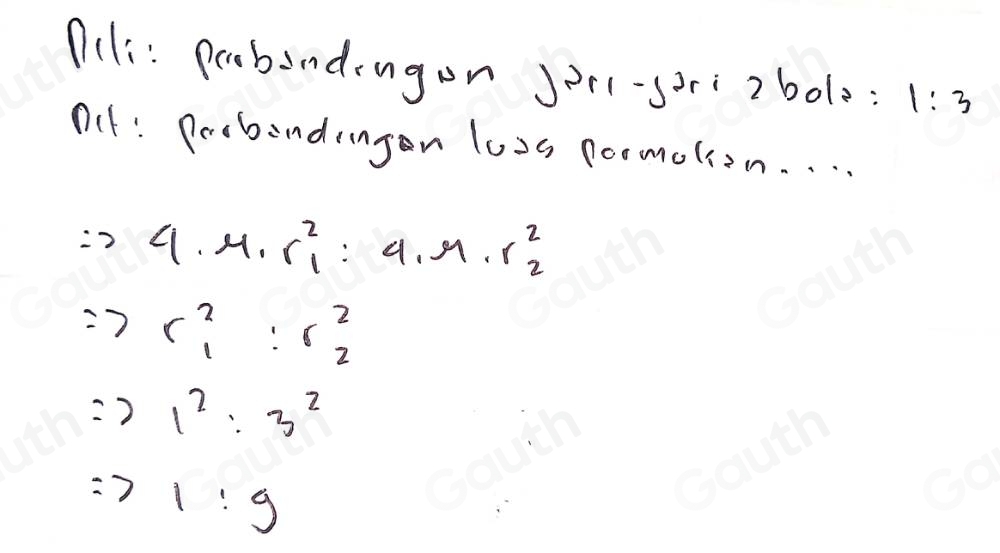 Dik: perbandingan jari-jari 2 bola : 1 : 3
Dit : perbandingan luas permukaan....
=> 4 . π . r₁² : 4 . π . r₂²
=> r₁² : r₂²
=> 1² : 3²
=> 1 : 9
Gauth